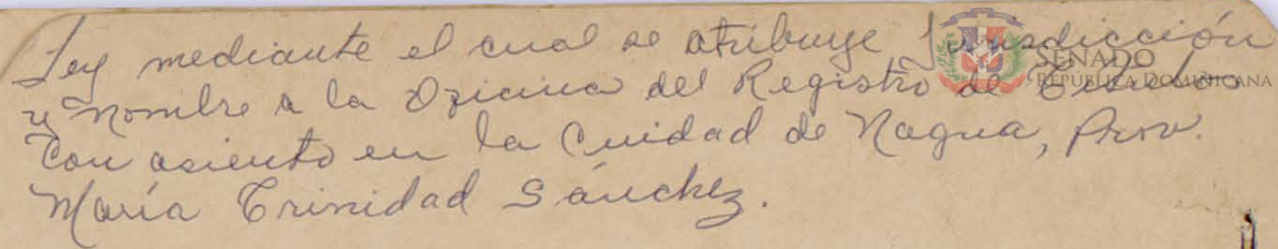 Ley mediante el cual se atribuye Jurisdicción
y nombre a la Oficina del Registro de Títulos
con asiento en la Cuidad de Nagua, Prov.
María Trinidad Sánchez.
SENADO
REPÚBLICA DOMINICANA